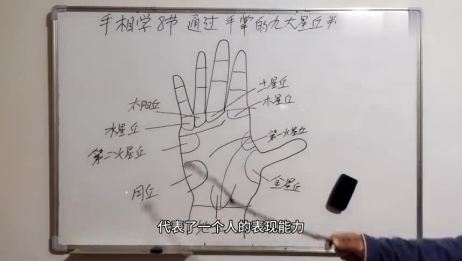 手相学8节 通过手掌的九大星丘来
太阳丘
土星丘
木星丘
水星丘
第二火星丘
第一火星丘
月丘
金星丘
代表了一个人的表现能力